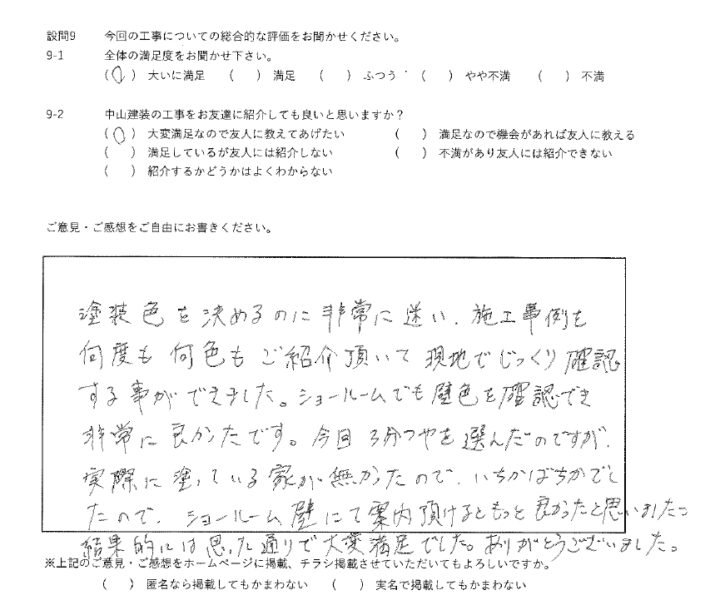 設問9 今回の工事についての総合的な評価をお聞かせください。
9-1 全体の満足度をお聞かせ下さい。
(○) 大いに満足 ( ) 満足 ( ) ふつう ( ) やや不満 ( ) 不満
9-2 中山建装の工事をお友達に紹介しても良いと思いますか？
(○) 大変満足なので友人に教えてあげたい ( ) 満足なので機会があれば友人に教える
( ) 満足しているが友人には紹介しない ( ) 不満があり友人には紹介できない
( ) 紹介するかどうかはよくわからない
ご意見・ご感想をご自由にお書きください。
塗装色を決めるのに非常に迷い、施工事例を
何度も何色もご紹介頂いて現地でじっくり確認
する事ができました。ショールームでも壁色を確認でき
非常に良かたです。今回3分つやを選んだのですが、
実際に塗っている家が無かたので、いちかばちかでし
たので、ショールーム壁にて案内頂けるともっと良かったと思いましたっ
結果的には思った通りで大変満足でした。ありがとうございました。
※上記のご意見・ご感想をホームページに掲載、チラシ掲載させていただいてもよろしいですか。
( ) 匿名なら掲載してもかまわない ( ) 実名で掲載してもかまわない